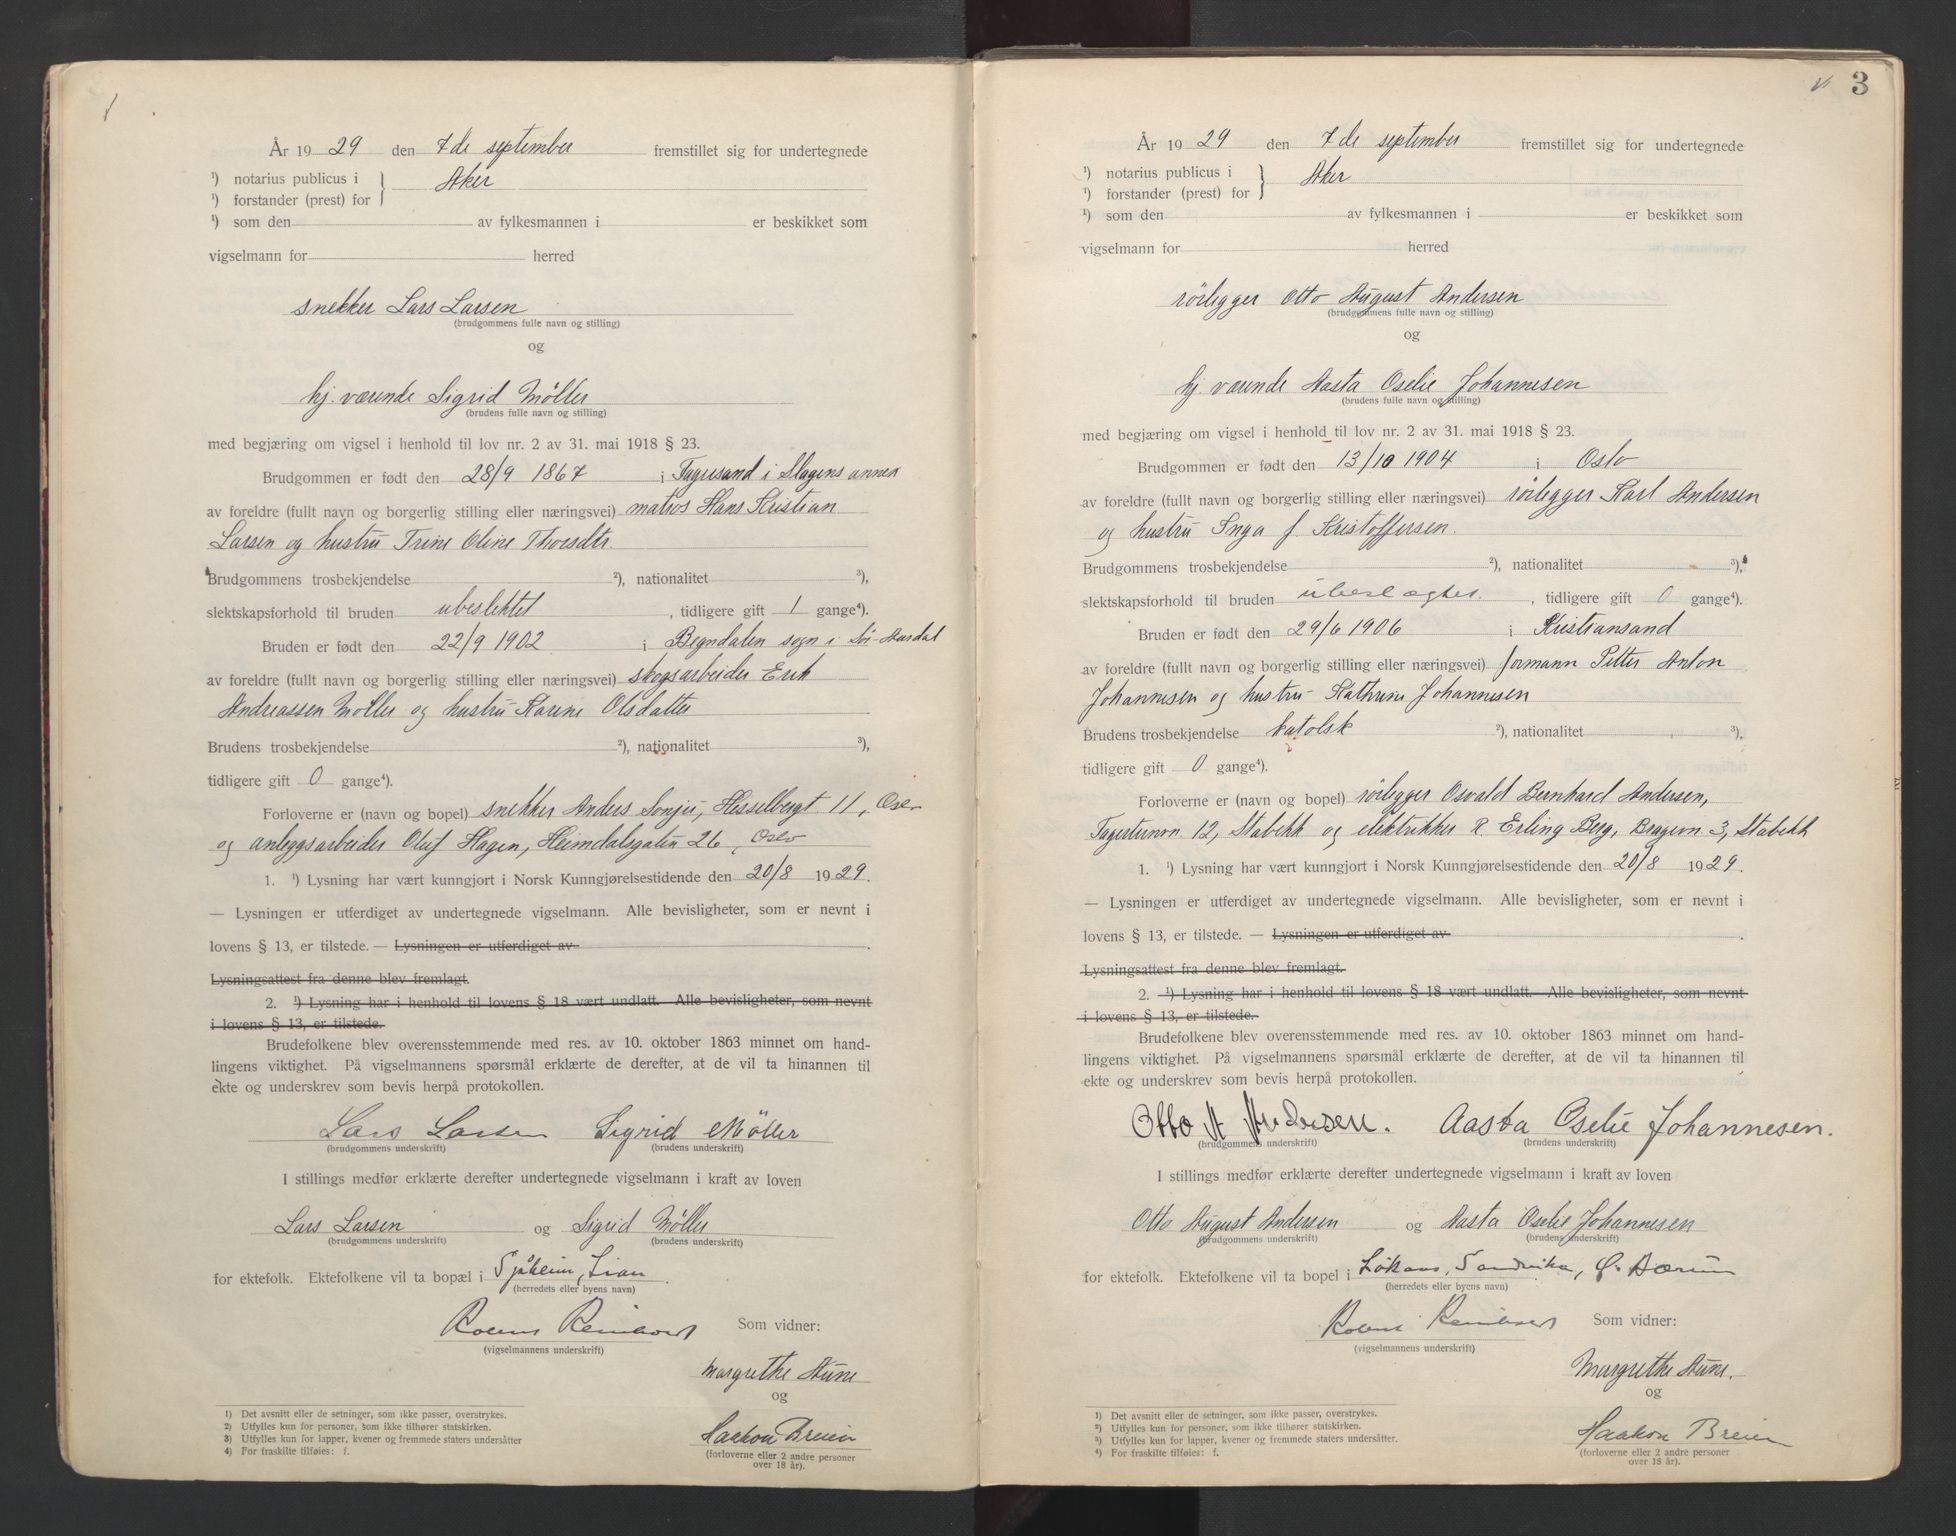 År 1929 den 7de september fremstillet sig for undertegnede
¹) notarius publicus i } Aker
¹) forstander (prest) for
¹) som den av fylkesmannen i er beskikket som
vigselmann for herred
snekker Lars Larsen
(brudgommens fulle navn og stilling)
og
hj. værende Sigrid Møller
(brudens fulle navn og stilling)
med begjæring om vigsel i henhold til lov nr. 2 av 31. mai 1918 § 23.
Brudgommen er født den 28/9 1867 i Fagersand i Slagens annex
av foreldre (fullt navn og borgerlig stilling eller næringsvei) matros Hans Kristian
Larsen og hustru Trine Oline Thorsdtr.
Brudgommens trosbekjendelse ²), nationalitet ³),
slektskapsforhold til bruden ubeslektet, tidligere gift 1 gange⁴).
Bruden er født den 22/9 1902 i Begndalen sogn i Sø-Aurdal
av foreldre (fullt navn og borgerlig stilling eller næringsvei) skogsarbeider Erik
Andreassen Møller og hustru Karene Olsdatter
Brudens trosbekjendelse ²), nationalitet ³),
tidligere gift 0 gange⁴).
Forloverne er (navn og bopel) snekker Anders Hesselbergt 11, Oslo
og anleggsarbeider Oluf Hagen, Heimdalsgaten 26, Oslo
1. ¹) Lysning har vært kunngjort i Norsk Kunngjørelsestidende den 20/8 1929.
— Lysningen er utferdiget av undertegnede vigselmann. Alle bevisligheter, som er nevnt i
lovens § 13, er tilstede. — Lysningen er utferdiget av .
Lysningsattest fra denne blev fremlagt.
2. ¹) Lysning har i henhold til lovens § 18 vært undlatt. Alle bevisligheter, som nevnt
i lovens § 13, er tilstede.
Brudefolkene blev overensstemmende med res. av 10. oktober 1863 minnet om hand-
lingens viktighet. På vigselmannens spørsmål erklærte de derefter, at de vil ta hinannen til
ekte og underskrev som bevis herpå protokollen.
Lars Larsen Sigrid Møller
(brudgommens underskrift) (brudens underskrift)
I stillings medfør erklærte derefter undertegnede vigselmann i kraft av loven
Lars Larsen og Sigrid Møller
(brudgommens underskrift) (brudens underskrift)
for ektefolk. Ektefolkene vil ta bopæl i Sjåheim, Lian
(herredets eller byens navn)
Som vidner:
(vigselmannens underskrift)
Margrethe Aune
og
Haakon Breien
(forloverne eller 2 andre personer
over 18 år).
1) Det avsnitt eller de setninger, som ikke passer, overstrykes.
2) Utfylles kun for personer, som ikke tilhører statskirken.
3) Utfylles kun for lapper, kvener og fremmede staters undersåtter
4) For fraskilte tilføies: f.
3
År 1929 den 7de september fremstillet sig for undertegnede
¹) notarius publicus i } Aker
¹) forstander (prest) for
¹) som den av fylkesmannen i er beskikket som
vigselmann for herred
rørlegger Otto August Andersen
(brudgommens fulle navn og stilling)
og
hj. værende Aasta Oselie Johannesen
(brudens fulle navn og stilling)
med begjæring om vigsel i henhold til lov nr. 2 av 31. mai 1918 § 23.
Brudgommen er født den 13/10 1904 i Oslo
av foreldre (fullt navn og borgerlig stilling eller næringsvei) rørlegger Karl Andersen
og hustru Inga f. Kristoffersen.
Brudgommens trosbekjendelse ²), nationalitet ³),
slektskapsforhold til bruden , tidligere gift 0 gange⁴).
Bruden er født den 29/6 1906 i Kristiansand
av foreldre (fullt navn og borgerlig stilling eller næringsvei) formann Petter Anton
Johannesen og hustru Kathrine Johannesen
Brudens trosbekjendelse katolsk ²), nationalitet ³),
tidligere gift 0 gange⁴).
Forloverne er (navn og bopel) rørlegger Osvald Bernhard Andersen,
12, Stabekk og elektrikker R. Erling Berg, Dragevn. 3, Stabekk
1. ¹) Lysning har vært kunngjort i Norsk Kunngjørelsestidende den 20/8 1929.
— Lysningen er utferdiget av undertegnede vigselmann. Alle bevisligheter, som er nevnt i
lovens § 13, er tilstede. — Lysningen er utferdiget av .
Lysningsattest fra denne blev fremlagt.
2. ¹) Lysning har i henhold til lovens § 18 vært undlatt. Alle bevisligheter, som nevnt
i lovens § 13, er tilstede.
Brudefolkene blev overensstemmende med res. av 10. oktober 1863 minnet om hand-
lingens viktighet. På vigselmannens spørsmål erklærte de derefter, at de vil ta hinannen til
ekte og underskrev som bevis herpå protokollen.
Otto A Andersen. Aasta Oselie Johannesen.
(brudgommens underskrift) (brudens underskrift)
I stillings medfør erklærte derefter undertegnede vigselmann i kraft av loven
Otto August Andersen og Aasta Oselie Johannesen
(brudgommens underskrift) (brudens underskrift)
for ektefolk. Ektefolkene vil ta bopel i Løkaas, Sandvika, Ø. Bærum
(herredets eller byens navn)
Som vidner:
(vigselmannens underskrift)
Margrethe Aune.
og
Haakon Breien
(forloverne eller 2 andre personer
over 18 år).
¹) Det avsnitt eller de setninger, som ikke passer, overstrykes.
²) Utfylles kun for personer, som ikke tilhører statskirken.
³) Utfylles kun for lapper, kvener og fremmede staters undersåtter.
⁴) For fraskilte tilføies: f.